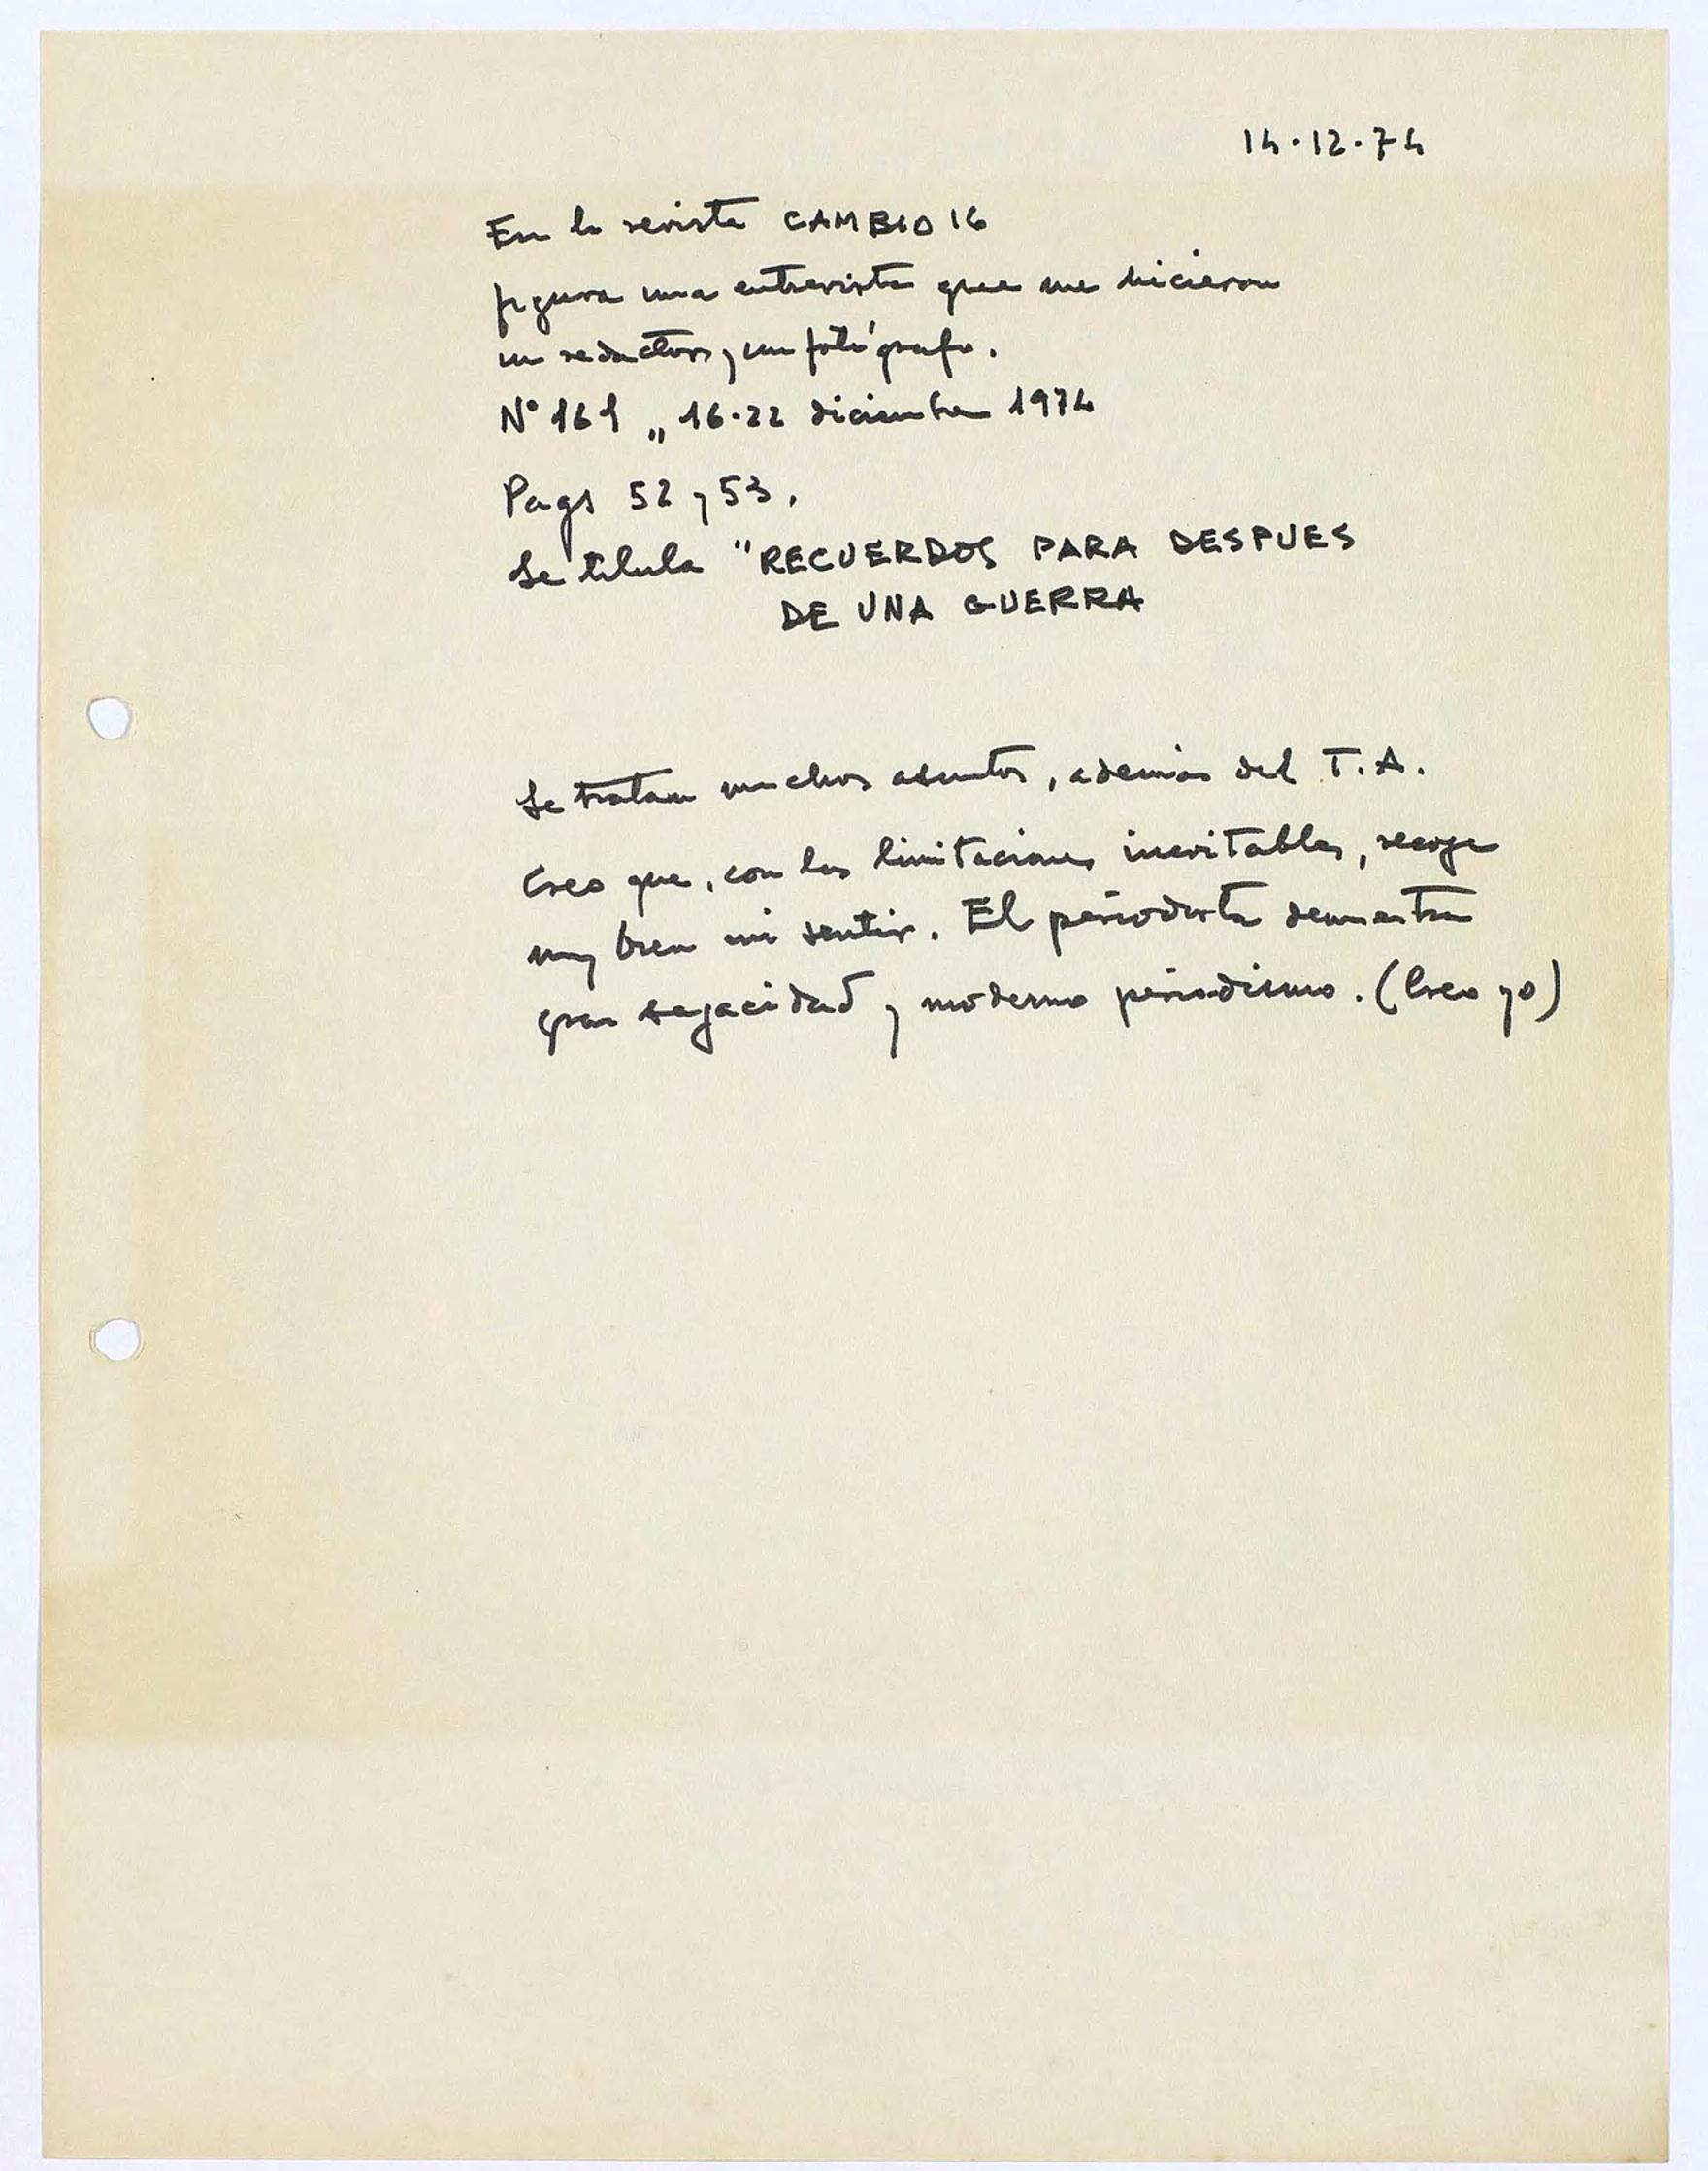 14.12.74
En la revista CAMBIO 16
figura una entrevista que me hicieron
un redactor y un fotógrafo.
Nº 161 „ 16-22 diciembre 1974
Pags 52 y 53.
Se titula "RECUERDOS PARA DESPUES
DE UNA GUERRA
Se tratan muchos asuntos, además del T.A.
Creo que, con las limitaciones inevitables, recoge
muy bien mi sentir. El periodista demuestra
gran sagacidad y moderno periodismo. (Creo yo)